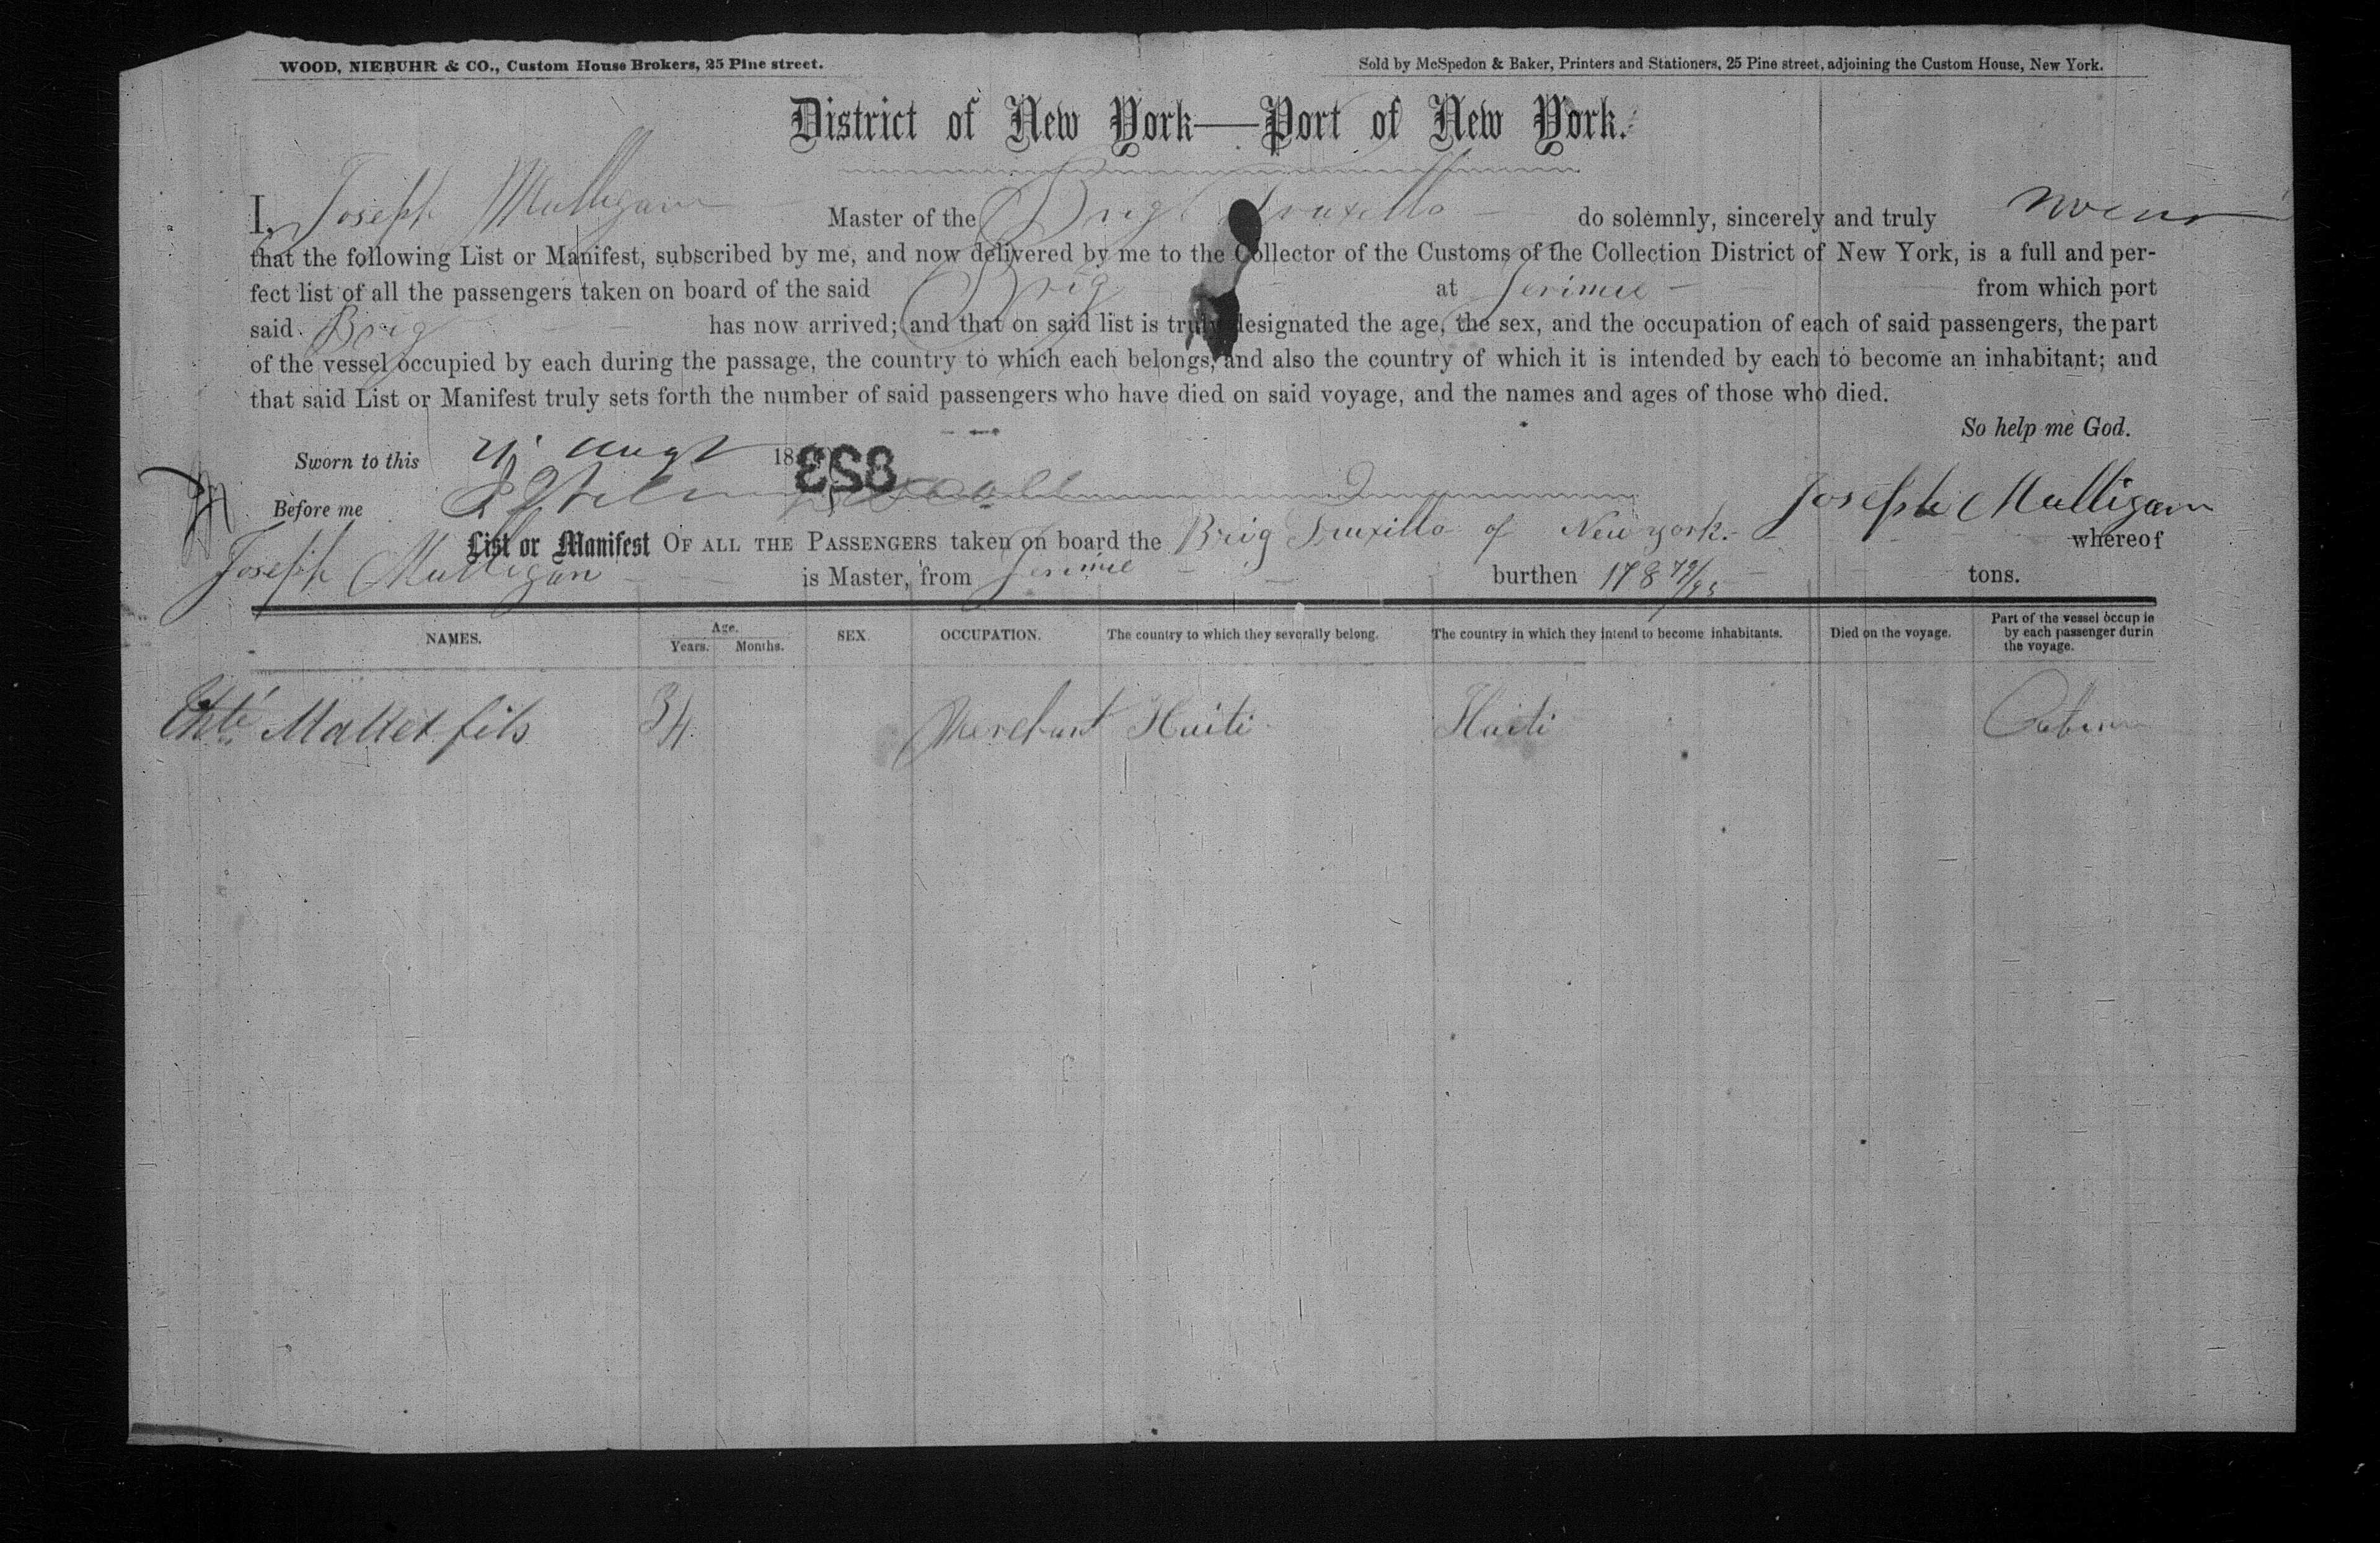 WOOD, NIEBUHR & CO., Custom House Brokers, 25 Pine street.
Sold by McSpedon & Baker, Printers and Stationers, 25 Pine street, adjoining the Custom House, New York.
District of New York—Port of New York.
I, Joseph Mulligan Master of the Brig Truxillo do solemnly, sincerely and truly swear
that the following List or Manifest, subscribed by me, and now delivered by me to the Collector of the Customs of the Collection District of New York, is a full and per-
fect list of all the passengers taken on board of the said Brig at Jerimie from which port
said Brig has now arrived; and that on said list is truly designated the age, the sex, and the occupation of each of said passengers, the part
of the vessel occupied by each during the passage, the country to which each belongs, and also the country of which it is intended by each to become an inhabitant; and
that said List or Manifest truly sets forth the number of said passengers who have died on said voyage, and the names and ages of those who died.
So help me God.
Sworn to this Augt 18
853
Before me
Joseph Mulligan
List or Manifest OF ALL THE PASSENGERS taken on board the Brig Truxillo of New york. whereof
Joseph Mulligan is Master, from Jerimie burthen 178 79/95 tons.
NAMES. Age. Years. Months. SEX. OCCUPATION. The country to which they severally belong. The country in which they intend to become inhabitants. Died on the voyage. Part of the vessel occup ie by each passenger durin the voyage.
Mallet fils 34 Merchant Haiti Haiti Cabin